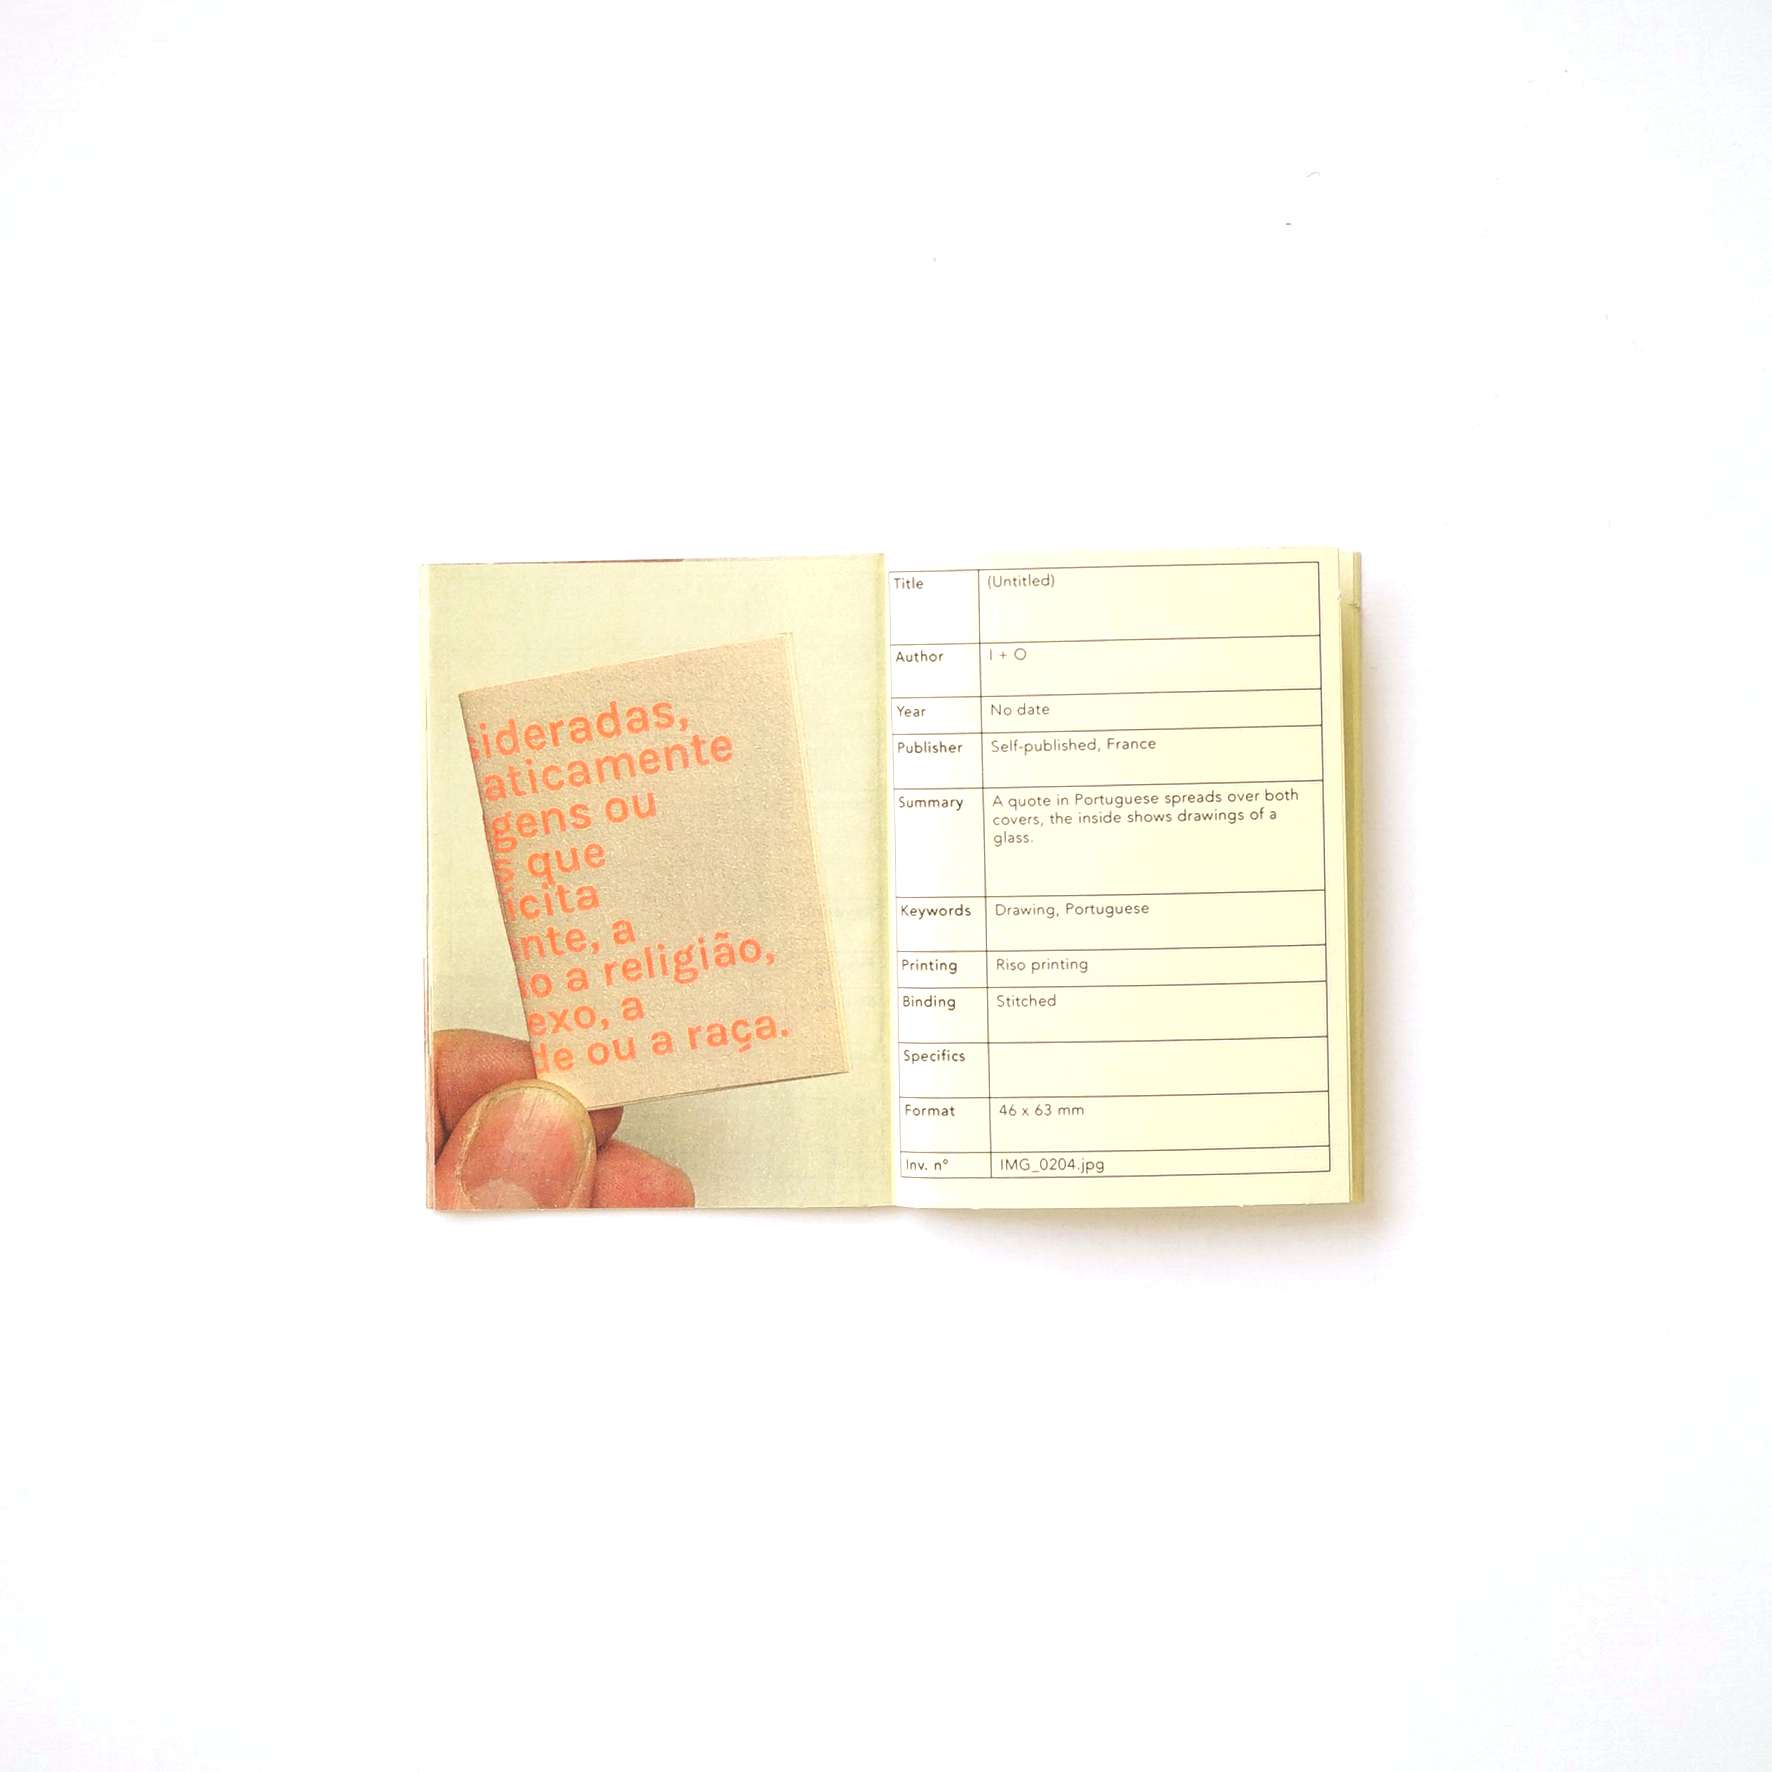 sideradas,
aticamente
gens ou
s que
icita
nte, a
o a religião,
exo, a
de ou a raça.
Title (Untitled)
Author I + O
Year No date
Publisher Self-published, France
Summary A quote in Portuguese spreads over both
covers, the inside shows drawings of a
glass.
Keywords Drawing, Portuguese
Printing Riso printing
Binding Stitched
Specifics
Format 46 x 63 mm
Inv. n° IMG_0204.jpg